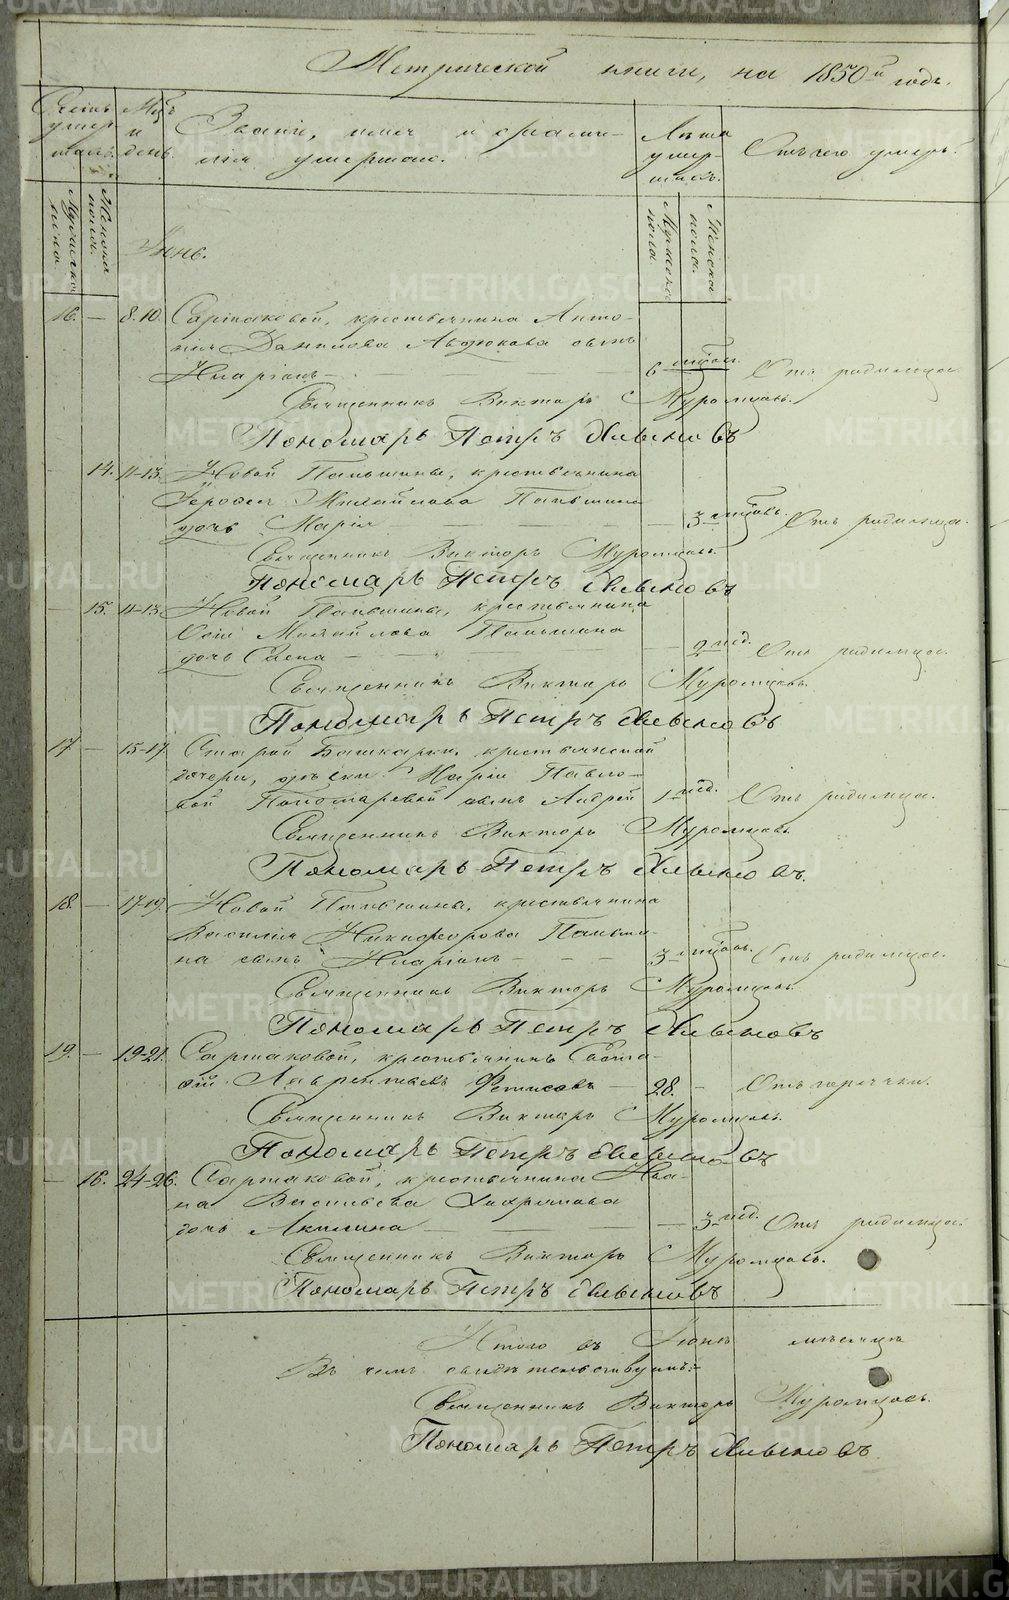 Метрической книги, на 1850й годъ.
Счетъ умер-шихъ.
Мѣс. и день.
Званіе, имя и фамилія умершаго.
Лѣта умершаго.
Отъ чего умеръ.
Мужеска пола
Женска пола.
Мужеска пола.
Женска пола.
Іюнь.
16. — 8.10. Сарпаковой, крестьянина Анто-
нія Данилова Авдюкова сынъ
6 мѣсяц. Отъ родимца.
Священникъ Викторъ Муромцовъ.
Пономарь Петръ Хлыновъ
14. 11-13. Новой Паньшины, крестьянина
Михайлова Паньшина
дочь Марія — 3 мѣсяцовъ. Отъ родимца.
Священникъ Викторъ Муромцовъ.
Пономарь Петръ Хлыновъ
— 15. 11-13. Новой Паньшины, крестьянина
Михайлова Паньшина
дочь Елена — 2 нед. Отъ родимца.
Священникъ Викторъ Муромцовъ.
Пономарь Петръ Хлыновъ
17 — 15-17. Старой Башкарки, крестьянской
дочери, дѣвки Маріи Павло-
вой Пономаревой сынъ Андрей 1 нед. Отъ родимца.
Священникъ Викторъ Муромцовъ.
Пономарь Петръ Хлыновъ.
18. — 17-19. Новой Паньшины, крестьянина
Василія Никифорова Паньши-
на сынъ 3 мѣсяцовъ. Отъ родимца.
Священникъ Викторъ Муромцовъ.
Пономарь Петръ Хлыновъ
19. — 19-21. Сарпаковой, крестьянинъ
Лаврентьевъ Фетисовъ — 28. — Отъ горячки.
Священникъ Викторъ Муромцовъ.
Пономарь Петръ Хлыновъ
— 16. 24-26. Сарпаковой, крестьянина Ива-
на Васильева
дочь Акилина — 3 нед. Отъ родимца.
Священникъ Викторъ Муромцовъ.
Пономарь Петръ Хлыновъ
Итого въ Іюнѣ мѣсяцѣ
Въ чемъ свидѣтельствуемъ:
Священникъ Викторъ Муромцовъ.
Пономарь Петръ Хлыновъ.
METRIKI.GASO-URAL.RU